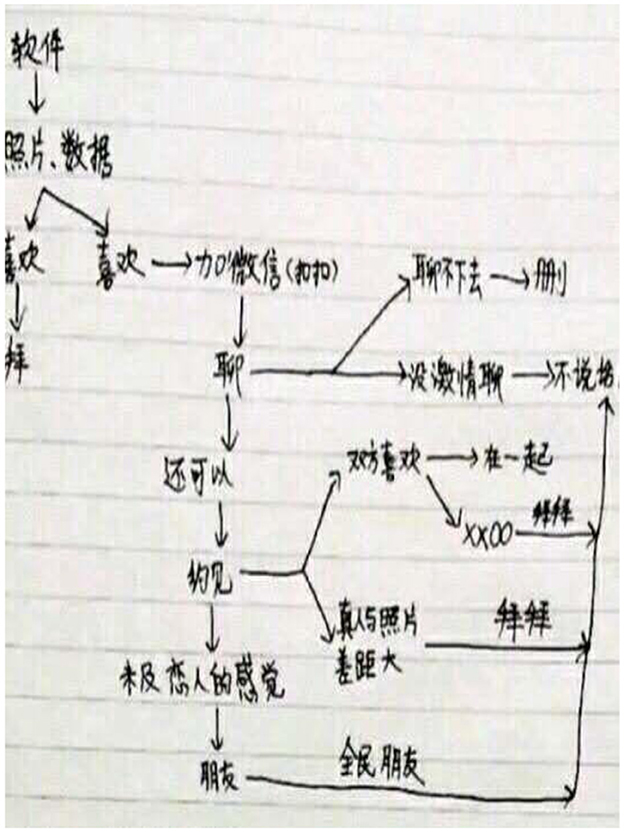 软件
照片、数据
喜欢
喜欢
加微信(扣扣)
聊不下去
删
拜
聊
没激情聊
不说话
还可以
双方喜欢
在一起
XXOO
拜拜
约见
真人与照片
差距大
拜拜
未及恋人的感觉
朋友
全民朋友